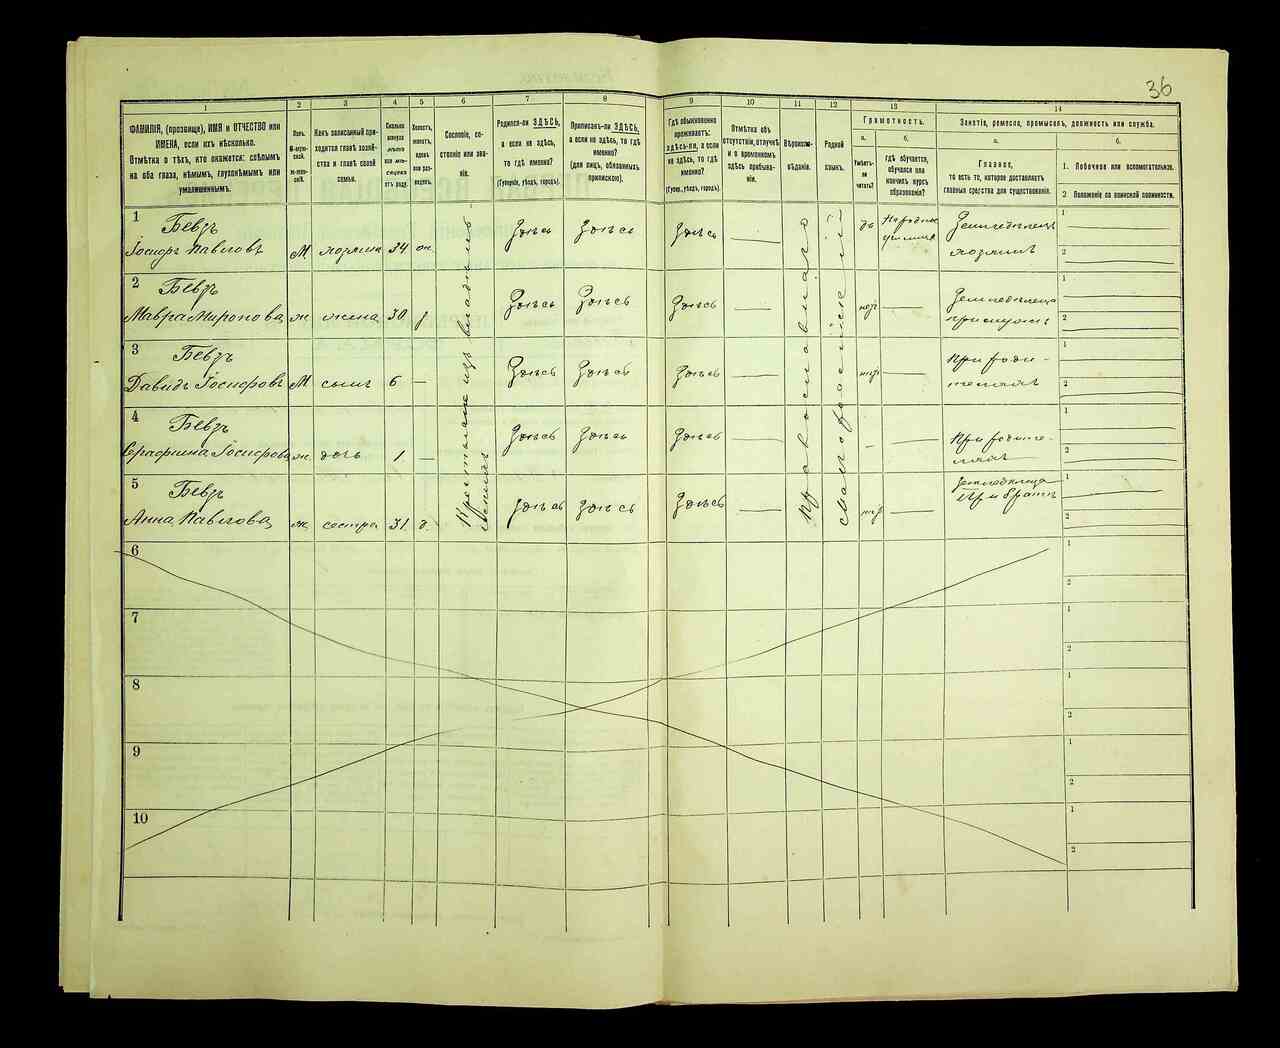 36
1 2 3 4 5 6 7 8 9 10 11 12 13 14
ФАМИЛІЯ, (прозвище), ИМЯ и ОТЧЕСТВО или
ИМЕНА, если ихъ нѣсколько.
Отмѣтка о тѣхъ, кто окажется: слѣпымъ
на оба глаза, нѣмымъ, глухонѣмымъ или
умалишеннымъ.
Полъ.
М-муж-
ской.
ж-жен-
скій.
Какъ записанный при-
ходится главѣ хозяй-
ства и главѣ своей
семьи.
Сколько
минуло
лѣтъ
или мѣ-
сяцевъ
отъ роду.
Холостъ,
женатъ,
вдовъ
или раз-
веденъ.
Сословіе, со-
стояніе или зва-
ніе.
Родился-ли ЗДѢСЬ,
а если не здѣсь,
то гдѣ именно?
(Губернія, уѣздъ, городъ).
Приписанъ-ли ЗДѢСЬ,
а если не здѣсь, то гдѣ
именно?
(для лицъ, обязанныхъ
припискою).
Гдѣ обыкновенно
проживаетъ:
здѣсь-ли, а если
не здѣсь, то гдѣ
именно?
(Губер., уѣздъ, городъ).
Отмѣтка объ
отсутствіи, отлучкѣ
и о временномъ
здѣсь пребыва-
ніи.
Вѣроиспо-
вѣданіе.
Родной
языкъ.
Грамотность.
а.
Умѣетъ-
ли
читать?
б.
гдѣ обучается,
обучался или
кончилъ курсъ
образованія?
Занятіе, ремесло, промыселъ, должность или служба.
а.
Главное,
то есть то, которое доставляетъ
главныя средства для существованія.
б.
1. Побочное или вспомогательное.
2 Положеніе по воинской повинности.
Крестьяне изъ владѣльч
Православнаго
Малороссійскій
1 Бевзъ
Іосифъ Павловъ М хозяинъ 34 Здѣсь Здѣсь Здѣсь да Народное училище Земледѣлецъ
хозяинъ
1
2
2 Бевзъ
Мавра Миронова ж жена 30 Здѣсь Здѣсь Здѣсь Земледѣлица
при мужѣ
1
2
3 Бевзъ
Давидъ Іосифовъ М сынъ 6 Здѣсь Здѣсь Здѣсь При роди-
теляхъ
1
2
4 Бевзъ
Серафима Іосифова ж дочь 1 Здѣсь Здѣсь Здѣсь При родите-
ляхъ
1
2
5 Бевзъ
Анна Павлова ж сестра 31 Здѣсь Здѣсь Здѣсь Земледѣлица
При братѣ
1
2
6
1
2
7
1
2
8
1
2
9
1
2
10
1
2